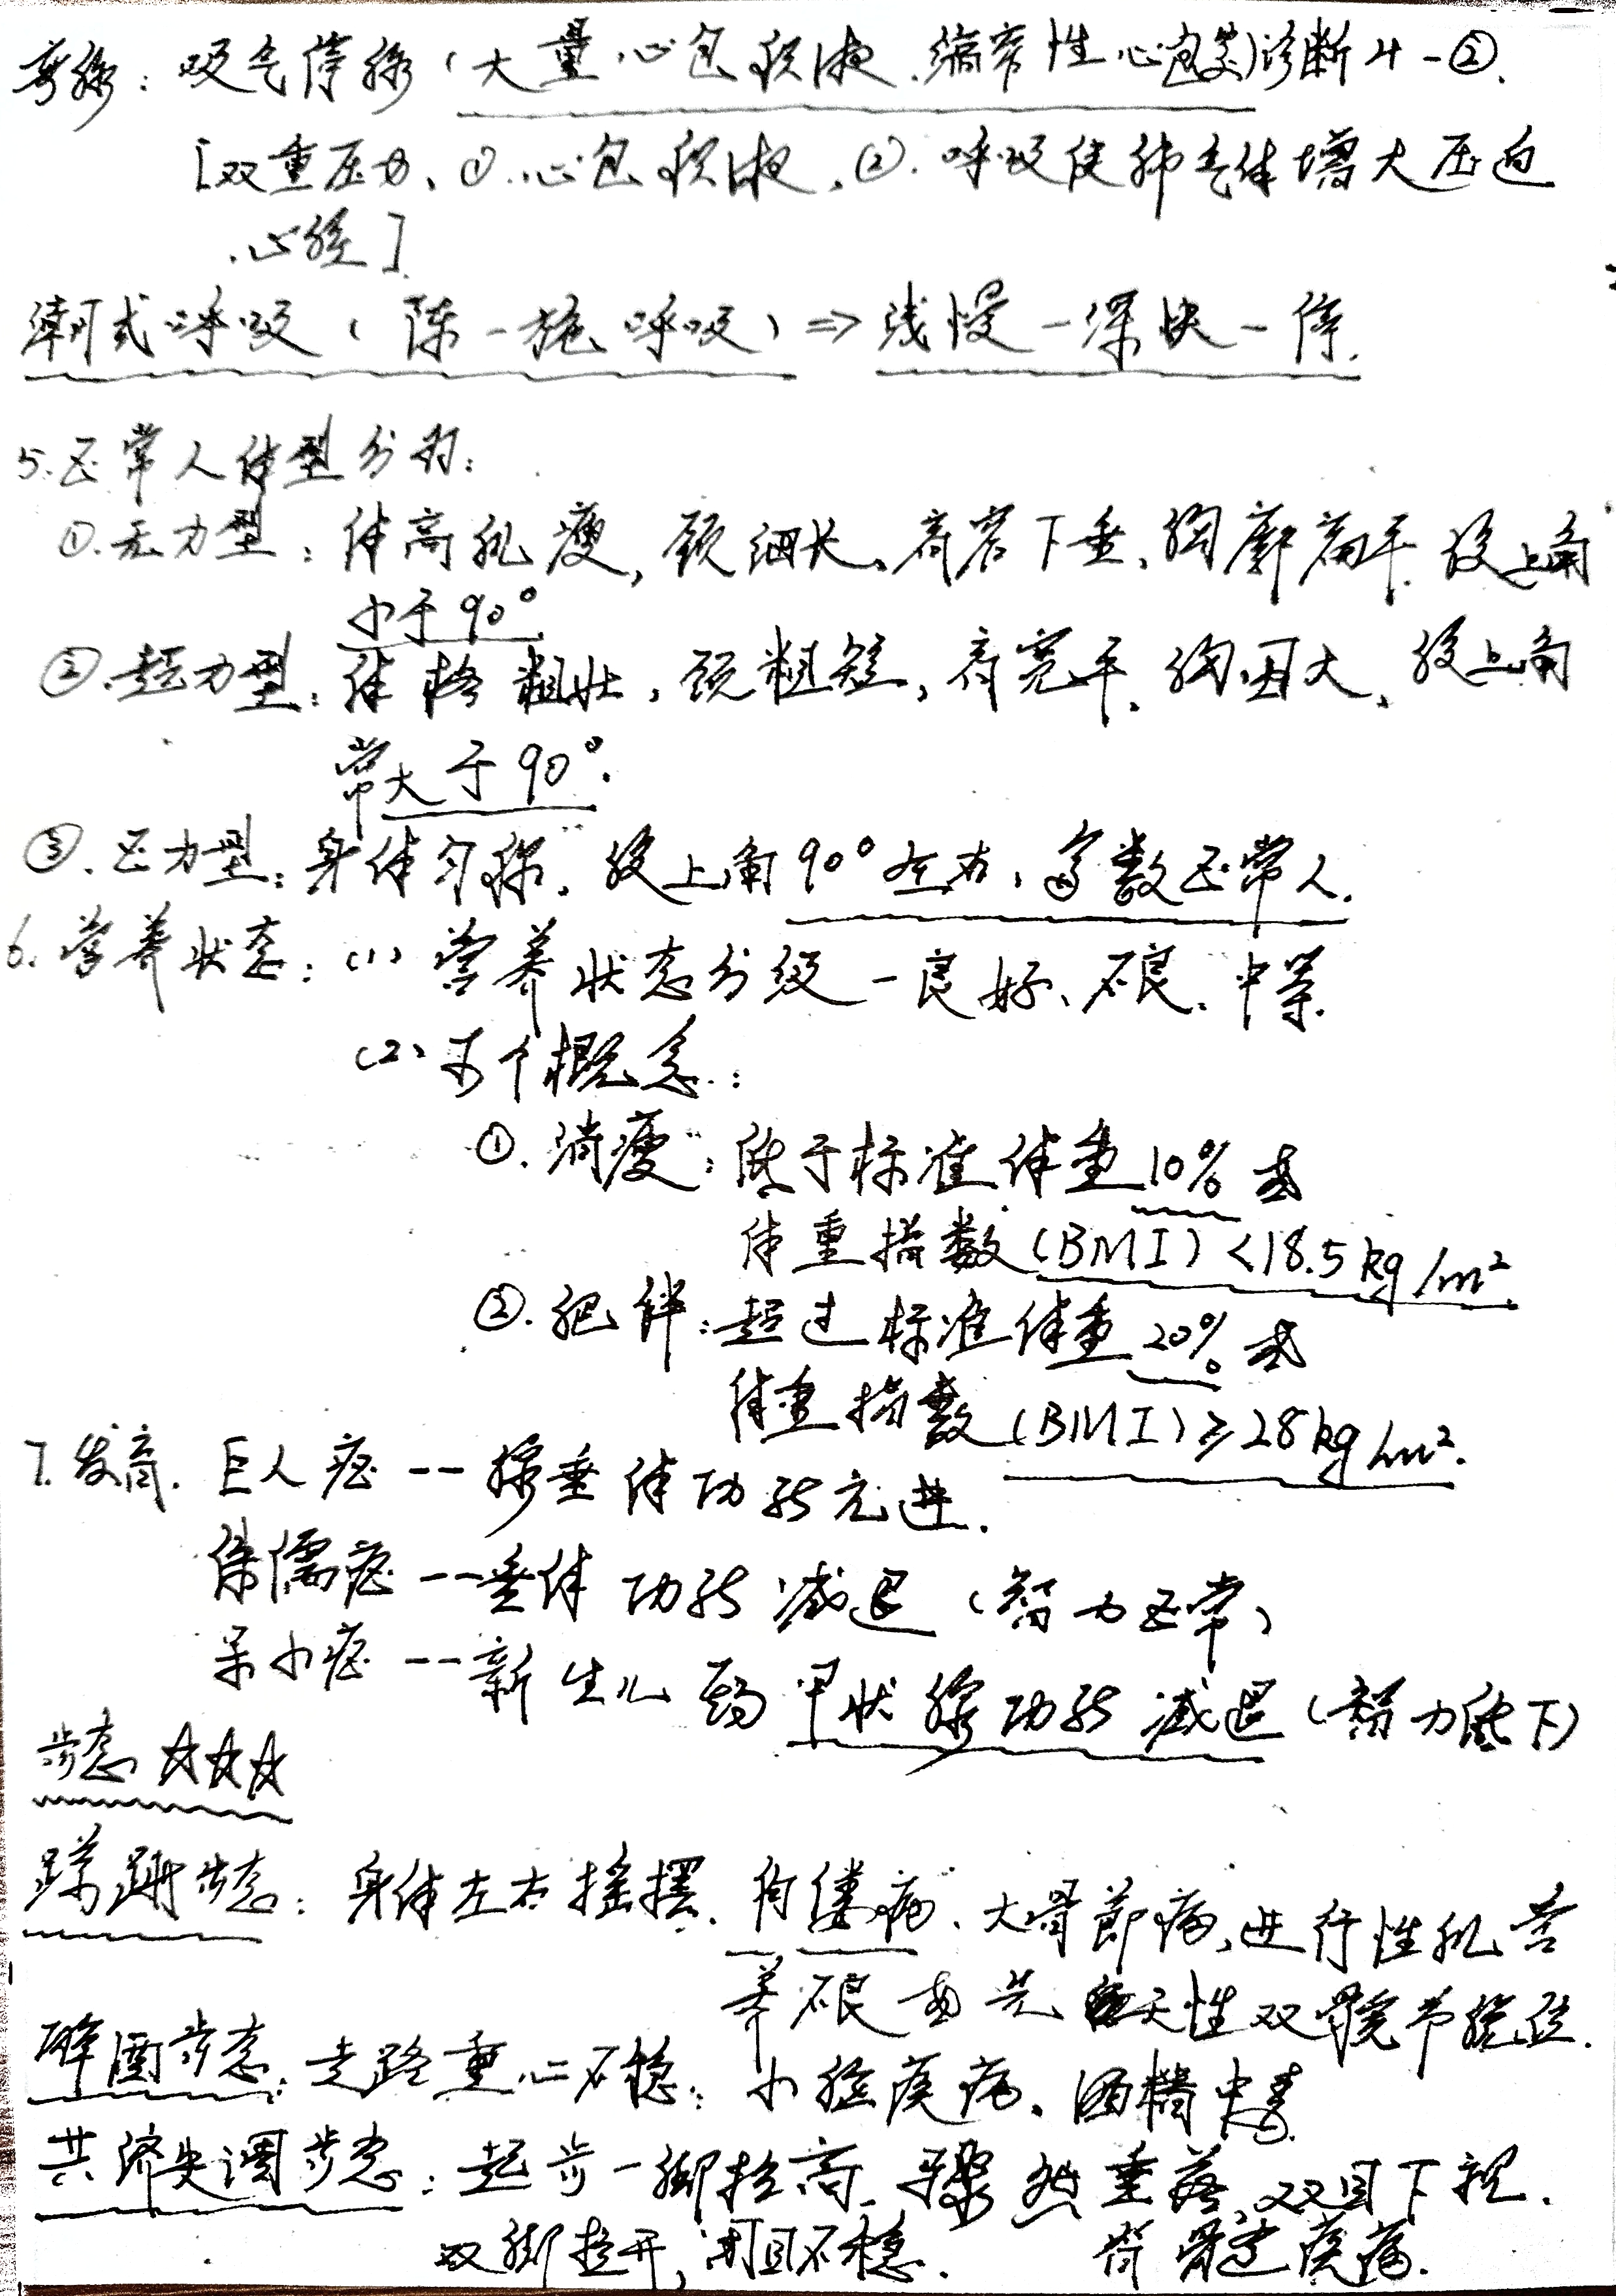 奇脉：吸气停脉（大量心包积液、缩窄性心包炎）诊断 4-②.
[双重压力、①.心包积液、②.呼吸使肺气体增大压迫
心脏].
潮式呼吸（陈-施呼吸）⇒浅慢-深快-停.
5.正常人体型分为：
①.无力型：体高肌瘦，颈细长、肩窄下垂、胸廓扁平. 腹上角
小于90°
②.超力型：体格粗壮，颈粗短，肩宽平、胸围大、腹上角
常大于90°.
③.正力型：身体匀称. 腹上角90°左右、多数正常人.
6.营养状态：(1) 营养状态分级-良好、不良、中等.
(2) 两个概念：
①.消瘦：低于标准体重10%或
体重指数(BMI)<18.5kg/m²
②.肥胖：超过标准体重20%或
体重指数(BMI)≥28kg/m².
7.发育. 巨人症--腺垂体功能亢进.
侏儒症--垂体功能减退（智力正常）
呆小症--新生儿期甲状腺功能减退（智力低下）
步态☆☆☆
蹒跚步态：身体左右摇摆. 佝偻病、大骨节病、进行性肌营
养不良或先天性双髋节脱位.
醉酒步态：走路重心不稳：小脑疾病、酒精中毒.
共济失调步态：起步一脚抬高、骤然垂落，双目下视.
双脚拉开，闭目不稳. 脊髓疾病.